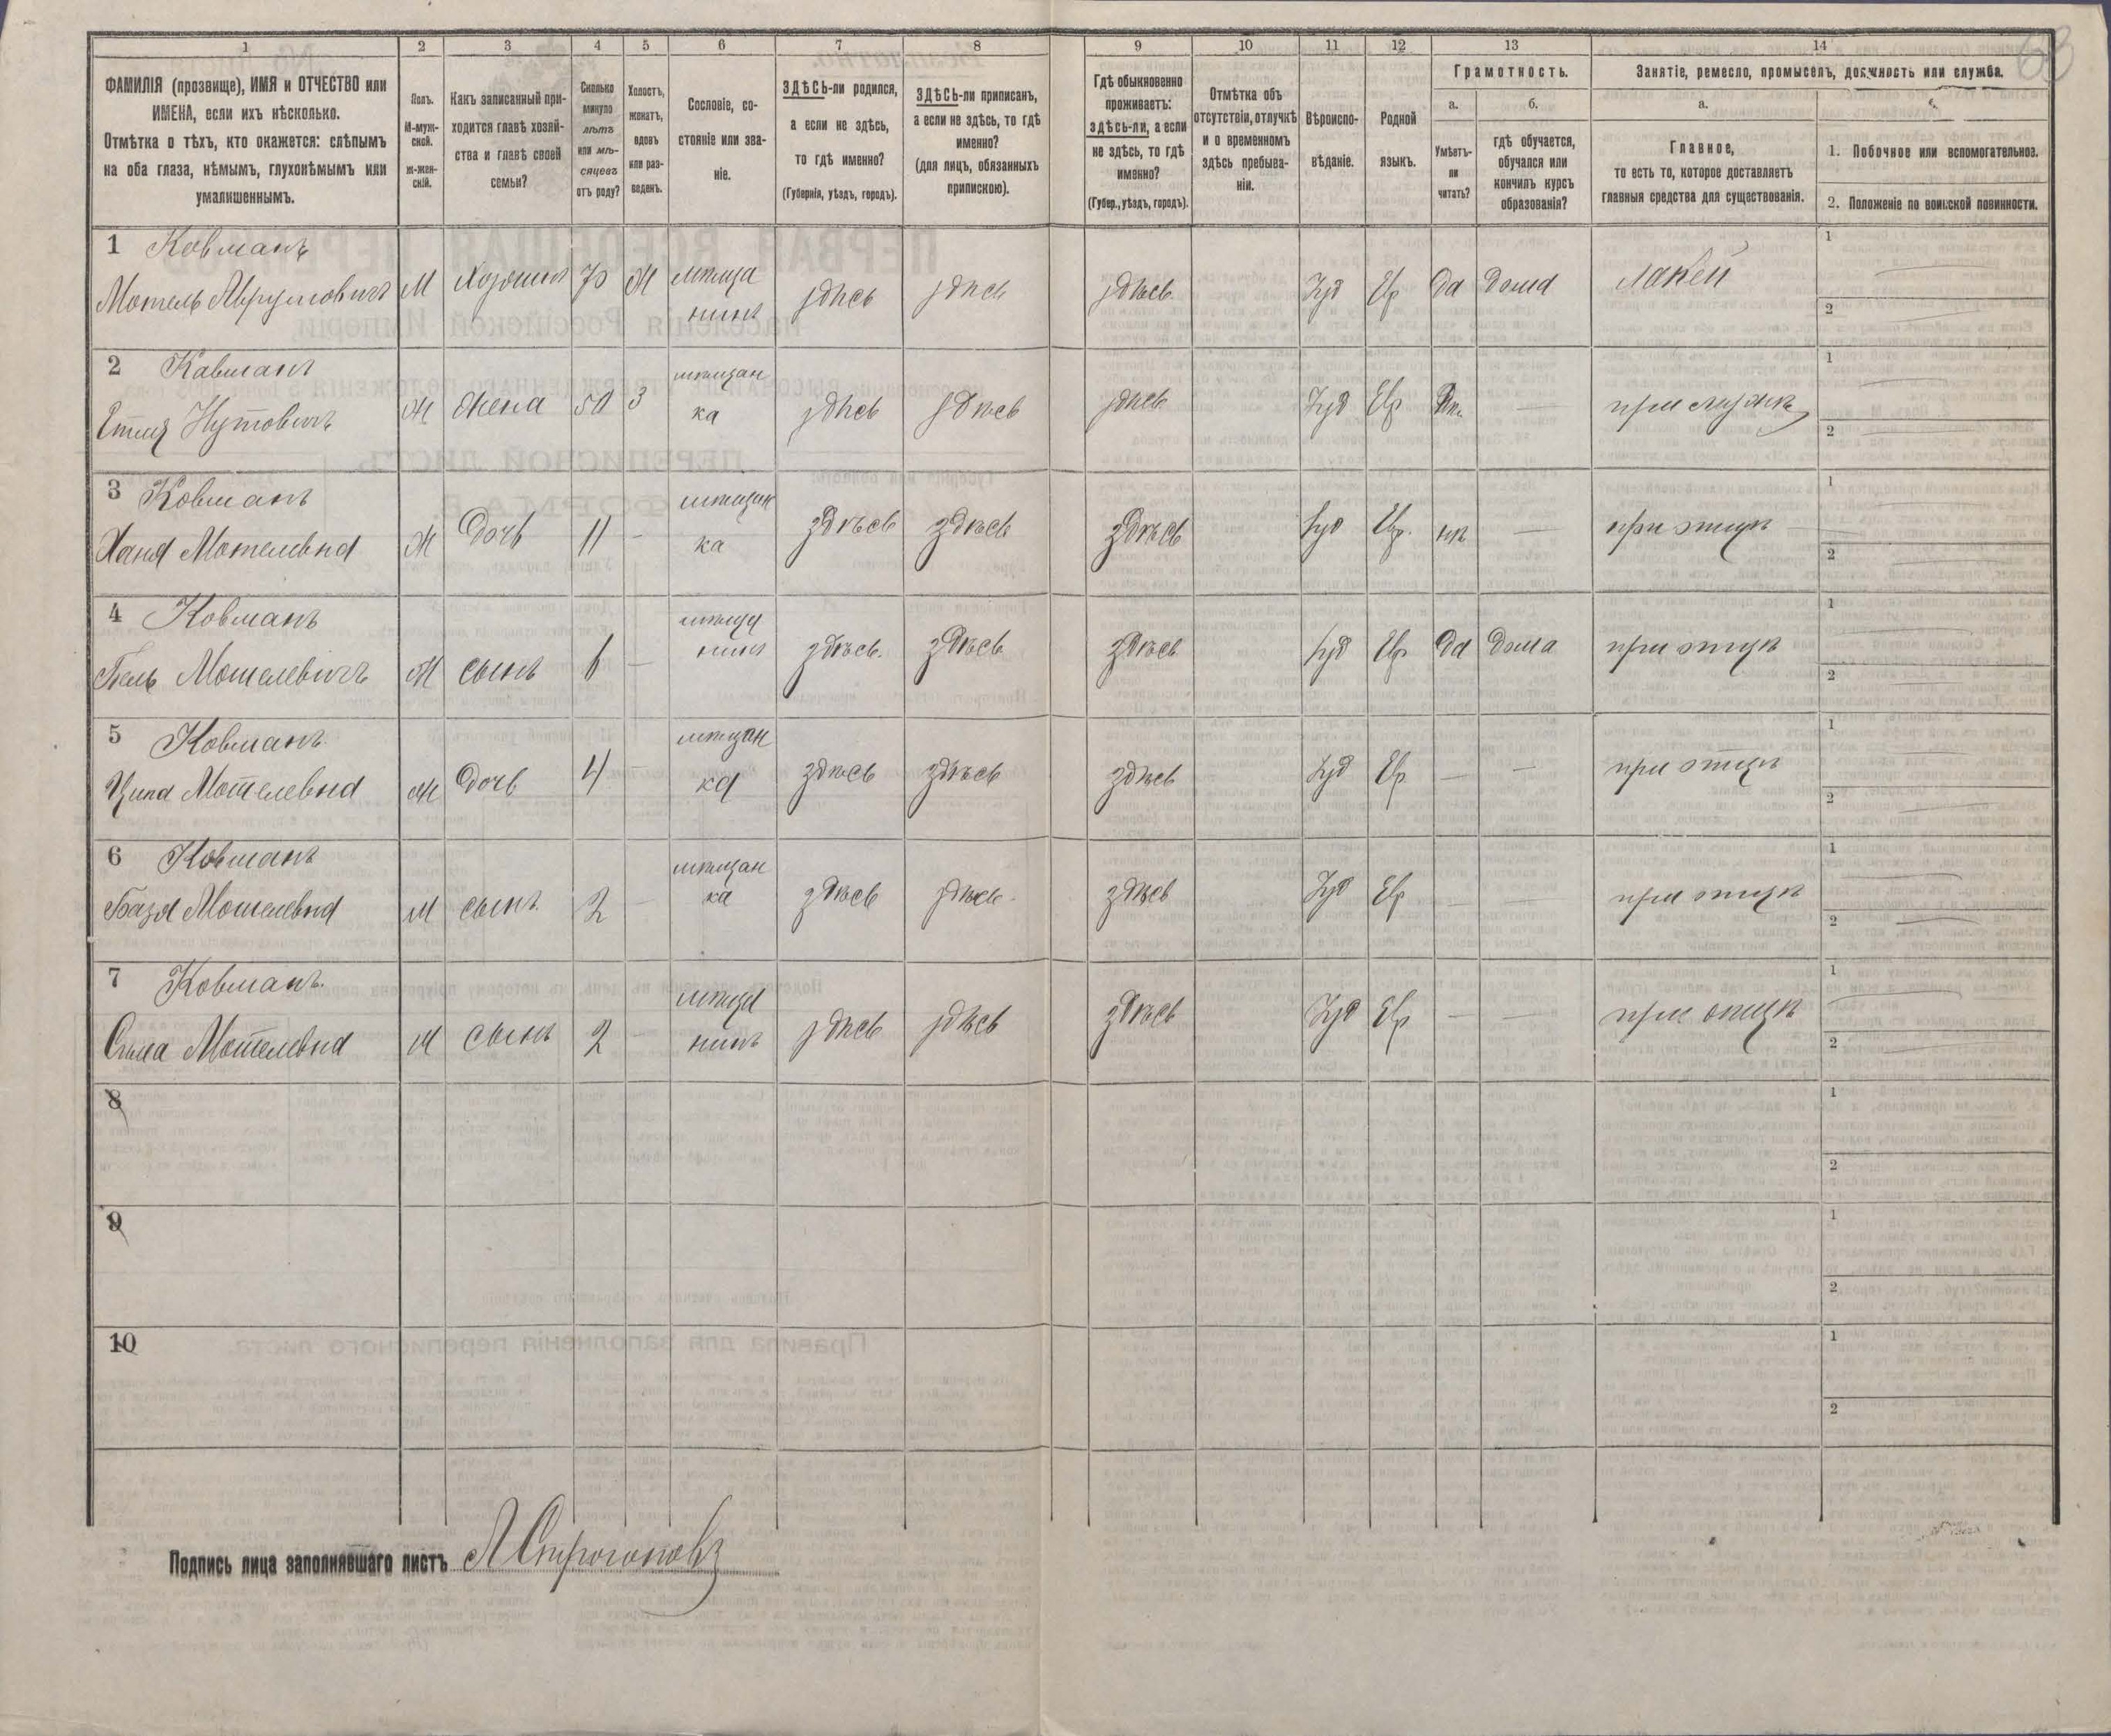 63
1 2 3 4 5 6 7 8 9 10 11 12 13 14
ФАМИЛІЯ (прозвище), ИМЯ и ОТЧЕСТВО или
ИМЕНА, если ихъ нѣсколько.
Отмѣтка о тѣхъ, кто окажется: слѣпымъ
на оба глаза, нѣмымъ, глухонѣмымъ или
умалишеннымъ.
Полъ.
М-муж-
ской.
ж-жен-
скій.
Какъ записанный при-
ходится главѣ хозяй-
ства и главѣ своей
семьи?
Сколько
минуло
лѣтъ
или мѣ-
сяцевъ
отъ роду?
Холостъ,
женатъ,
вдовъ
или раз-
веденъ.
Сословіе, со-
стояніе или зва-
ніе.
ЗДѢСЬ-ли родился,
а если не здѣсь,
то гдѣ именно?
(Губернія, уѣздъ, городъ).
ЗДѢСЬ-ли приписанъ,
а если не здѣсь, то гдѣ
именно?
(для лицъ, обязанныхъ
припискою).
Гдѣ обыкновенно
проживаетъ:
здѣсь-ли, а если
не здѣсь, то гдѣ
именно?
(Губер., уѣздъ, городъ).
Отмѣтка объ
отсутствіи, отлучкѣ
и о временномъ
здѣсь пребыва-
ніи.
Вѣроиспо-
вѣданіе.
Родной
языкъ.
Грамотность.
а.
Умѣетъ-
ли
читать?
б.
гдѣ обучается,
обучался или
кончилъ курсъ
образованія?
Занятіе, ремесло, промыселъ, должность или служба.
а.
Главное,
то есть то, которое доставляетъ
главныя средства для существованія.
1. Побочное или вспомогательное.
2. Положеніе по воинской повинности.
1 Ковманъ
Мотель М 70 Ж мѣща
нинъ здѣсь здѣсь здѣсь Іуд Евр да дома лакей
1
2
2 Кавманъ
Ж жена 50 З мѣщан
ка здѣсь здѣсь здѣсь Іуд Евр — при мужѣ
1
2
3 Ковманъ
Хана Мотелевна Ж дочь 11 - мѣщан
ка здѣсь здѣсь здѣсь Іуд Евр. нѣ — при отцѣ
1
2
4 Ковманъ
Мошелевичъ М сынъ — мѣща
нинъ здѣсь. здѣсь здѣсь Іуд Евр да дома при отцѣ
1
2
5 Ковманъ
Ципа Мотелевна Ж дочь 4 - мѣщан
ка здѣсь здѣсь здѣсь Іуд Евр — — при отцѣ
1
2
6 Ковманъ
Базя Мошелевна М сынъ 2 - мѣщан
ка здѣсь здѣсь здѣсь Іуд Евр — — при отцѣ
1
2
7 Ковманъ.
Мотелевна М сынъ 2 - мѣща
нинъ здѣсь здѣсь здѣсь Іуд Евр — — при отцѣ
1
2
8
1
2
9
1
2
10
1
2
Подпись лица заполнявшаго листъ АСтрогоновъ